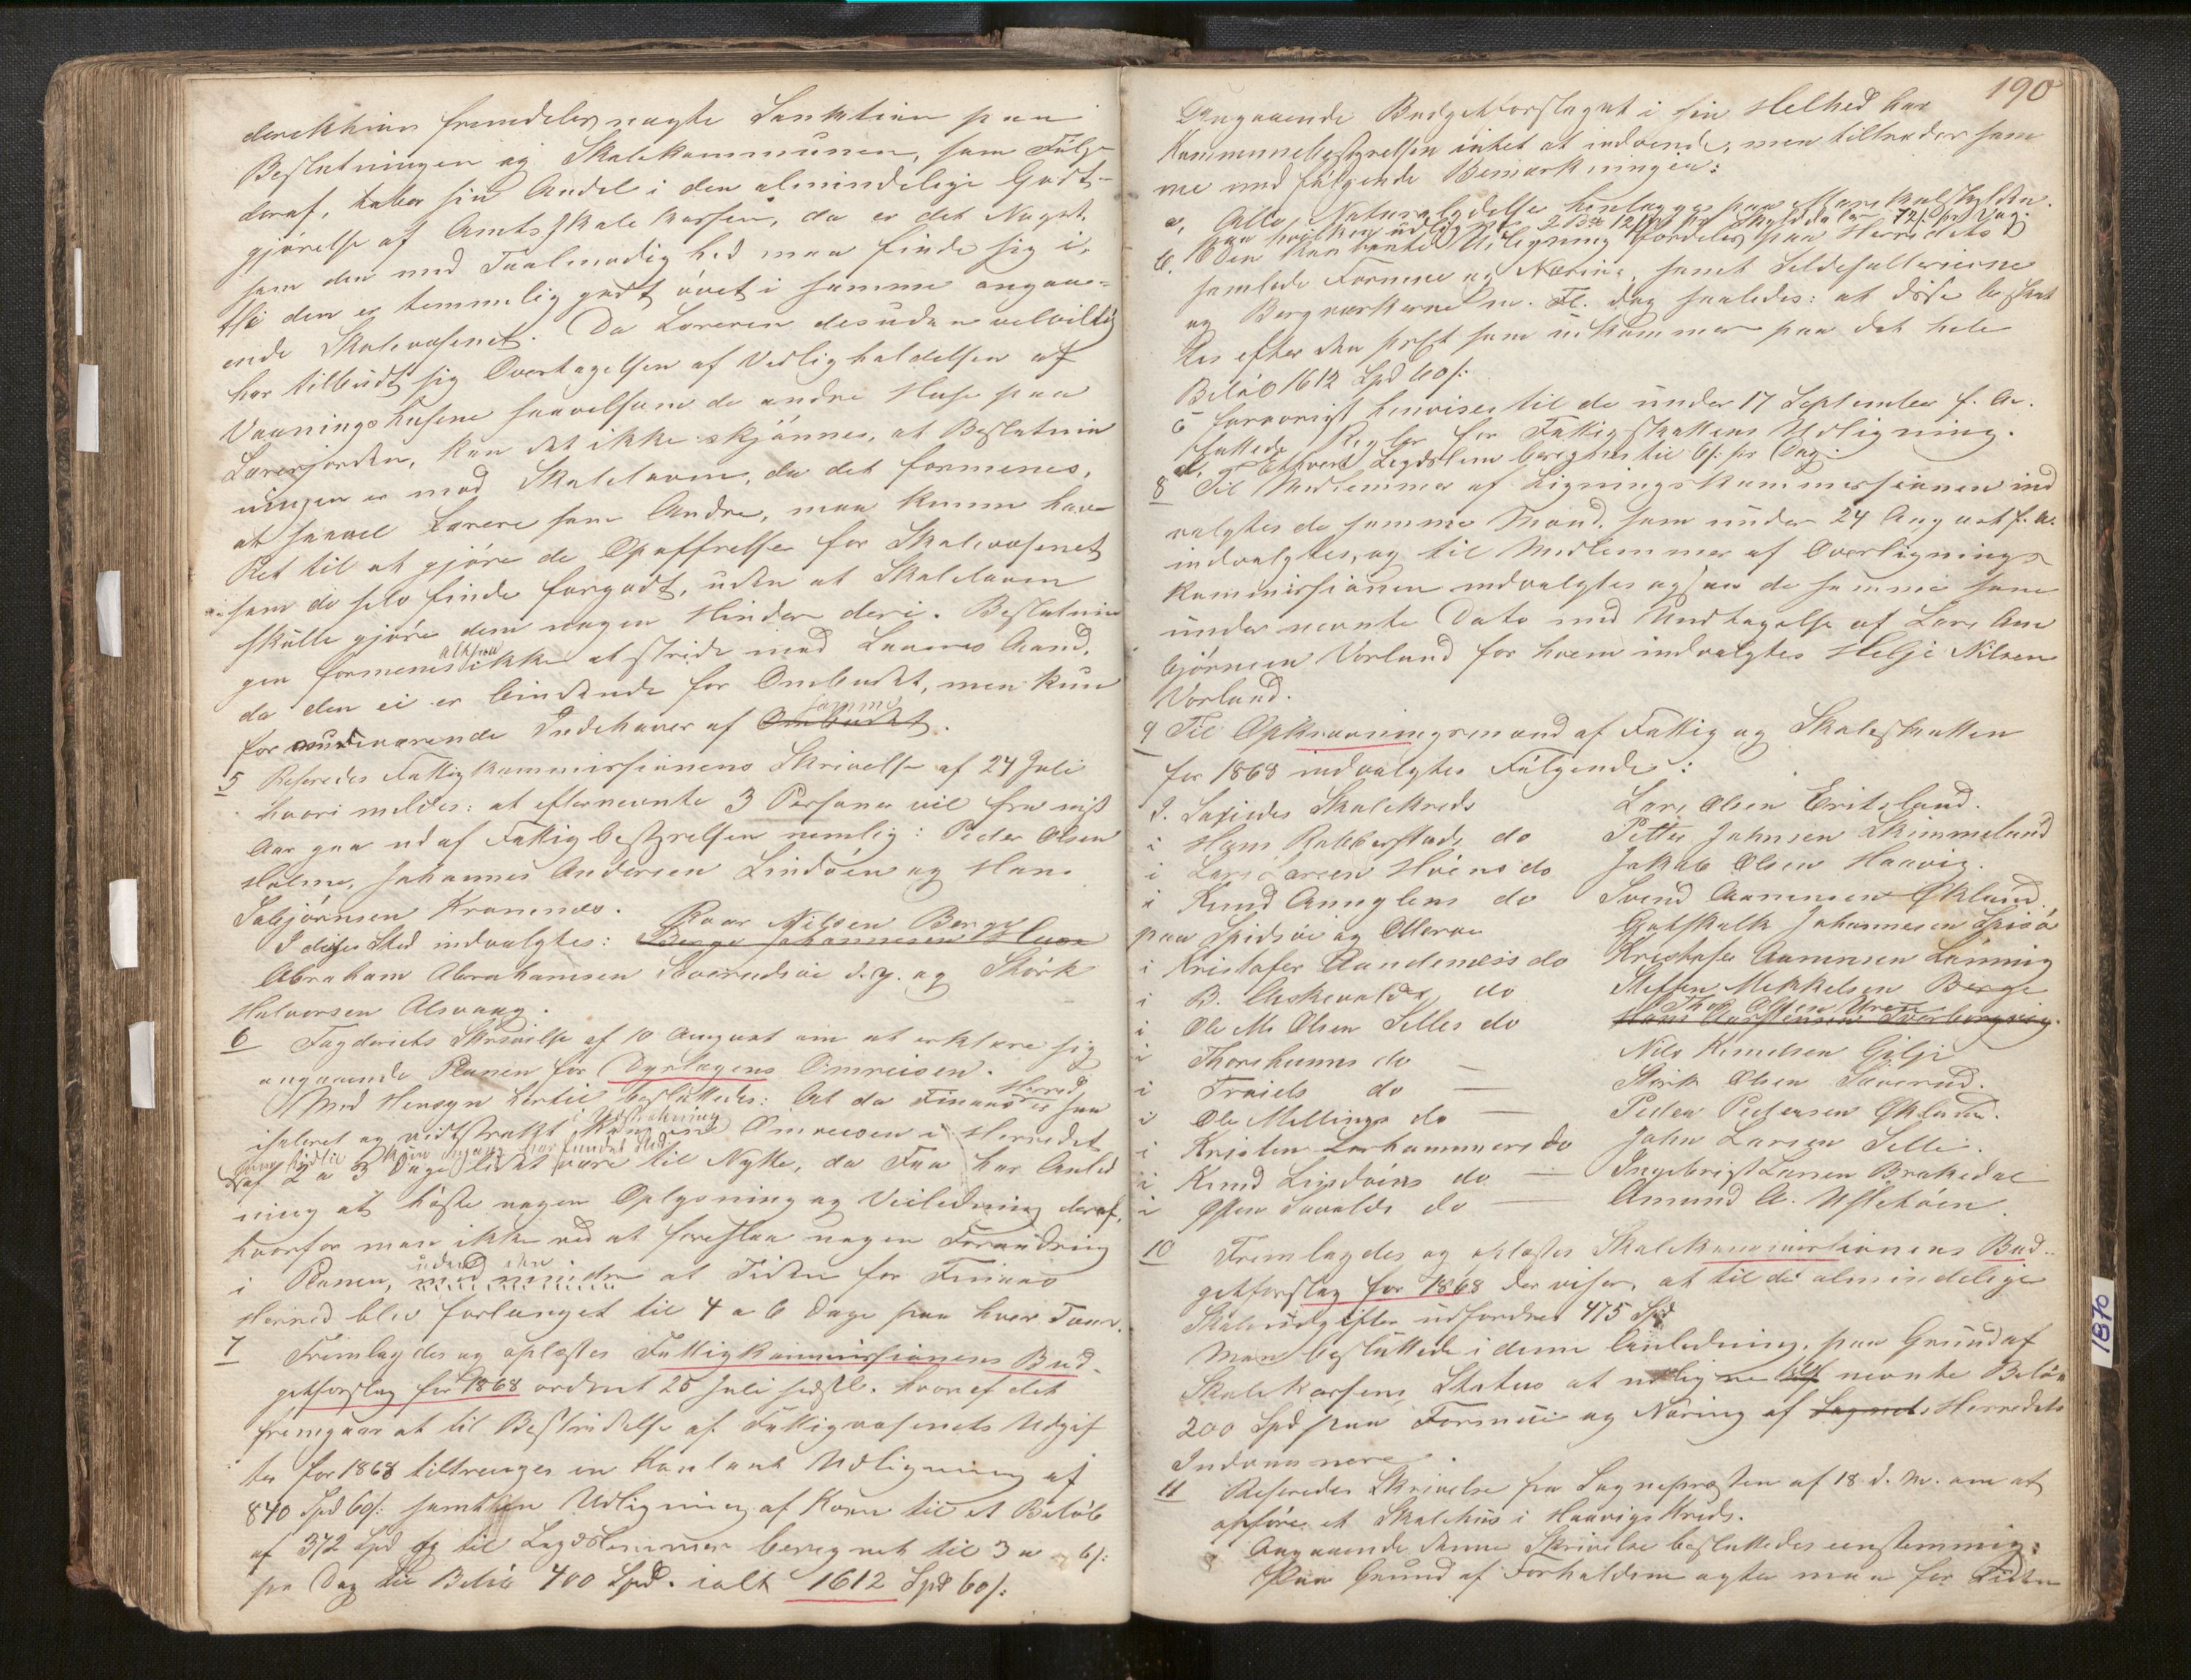 derektion fremdeles nægte Sanktion paa
Beslutningen og Skolekommunen, som Følge
deraf, taber sin Andel i den almindelige Godt-
gjørelse af Amtsskolekassen, da er det Noget
som den med Taalmodighed maa finde sig i,
thi den er temmelig godt øvet i samme angaa-
ende Skolevæsenet. Da Læreren desuden velvillig
har tilbudt sig Overtagelsen af Vedligholdelsen af
Vaaningshusene saavelsom de andre Huse paa
Lærerjorden, kan det ikke skjønnes, at Beslutnin
ningen er mod Skoleloven, da det formenes,
at saavel Lærere som Andre, maa kunne have
Ret til at gjøre de Opoffrelser for Skolevæsenet
som de selv finde forgodt, uden at Skoleloven
skulle gjøre dem nogen Hinder deri. Beslutnin
gen formenes altsaa ikke at stride mod Lovens Aand,
da den ei er bindende for Ombudet, men kun
for nuværende Indehaver af Ombudet samme.
5 Refereredes Fattigkommissionens Skrivelse af 24 Juli
hvori meldes: at efternevnte 3 Personer vil fra nist
Aar gaa ud af Fattigbestyrelsen nemlig: Peder Olsen
Holme, Johannes Andersen Lindøen og Hans
Asbjørnsen Kronenes.
I disses Sted indvalgtes: Roar Nilsen Berge
Abraham Abrahamsen Sæverudsøe d.y. og Størk
Halvorsen Alsvaag.
6 Fogderiets Skrivelse af 10 August om at erklære sig
angaaende Planen for Dyrlægens Omreisen.
Med Hensyn hertil besluttedes: At da Finaas Herred er saa
isoleret og vidtstrakt i Udstrækning kan en Omreisen i Herredet
af 2 a 3 Dage lidet være til Nytte, da Faa har Anled
ning at høste nogen Oplysning og Veiledning deraf,
hvorfor man ikke ved at foreslaa nogen Forandring
i Planen, uden den at Tiden for Finaas
Herred blev forlænget til 4 a 6 Dage paa hver Tour.
7 Fremlagdes og oplæstes Fattigkommissionens Bud-
getforslag for 1868 ordnet 25 Juli sidstl. hvoraf det
fremgaar at til Bestridelse af Fattigvæsenets Udgif
ter for 1868 tiltrænges en Kontant Udligning af
840 Spd 60 s: samt en Udligning af Korn til et Beløb
af 372 Spd og til Lægdslemmer beregnet til 3 a 6 s:
pr Dag til Beløb 400 Spd. ialt 1612 Spd 60 s:
190
Angaaende Budgetforslaget i sin Helhed har
Kommunebestyrelsen intet at indvende, men tiltræder sam
me med følgende Bemærkninger:
a, Alle Naturalydelser henlægges paa Matrikulskylden.
b, Den kontante Udligning fordeles paa Herredets
samlede Formue og Næring, samt Sildesalterierne
og Bergværkerne m. Fl. dog saaledes: at disse beskat
tes efter den prosit som udkommer paa det hele
Beløb 1612 Spd 60 s:
c forøvrigt henvises til de under 17 September f. A.
fattede Regler for Fattigskattens Udligning.
d, Ethvert Legdslem beregnes til 6 s: pr Dag.
8 Til Medlemmer af Ligningskommissionen ind
valgtes de samme Mænd, som under 24 August f. A.
indvalgtes, og til Medlemmer af Overlignings
kommissionen indvalgtes ogsaa de samme som
under nevnte Dato med Undtagelse af Lars Am
bjørnsen Vorland for hvem indvalgtes Helje Nilsen
Vorland.
9 Til Opkrævningsmænd af Fattig og Skoleskatten
for 1868 indvalgtes Følgende:
I. Saxindes Skolekreds Lars Olsen Eritsland.
i Hans Rabberstads do Petter Johnsen Skimmeland
i Lars Larsen Høines do Jakob Olsen Haavig.
i Knud Anuglens do Svend Aamunsen Økland.
paa Spidsøi og Olleren Gotskalk Johannesen Spisø
i Kristofer Aandenæs do Kristofer Aamunsen Lønning
i B. Eskevalds do Steffen Mikkelsen Berge
i Ole M. Olsen Selles do Thor Olsen Uren
i Thorshuuns do Nils Knudsen Gilje
i Froiels do Størk Olsen Sæverud.
i Ole Mellings do Peder Pedersen Økland.
i Kristen Lorhammers do John Larsen Selle.
i Knud Lindøens do Ingebrigt Larsen Brakedal
i Østen Savalds do Amund A. Ystehøen.
10 Fremlagdes og oplæstes Skolekommissionens Bud-
getforslag for 1868 der viser, at til de almindelige
Skoleudgifter udfordres 475 Spd
Man besluttede i denne Anledning, paa Grund af
Skolekassens Status at udligne af nevnte Beløb
200 Spd paa Formue og Næring af Sognets Herredets
Indvaanere.
11 Refereredes Skrivelse fra Sognepresten af 18 d. M. om at
opføre et Skolehus i Haavigs Kreds.
Angaaende denne Skrivelse besluttedes eenstemmig:
Paa Grund af Forholdene agter man for Tiden
1870